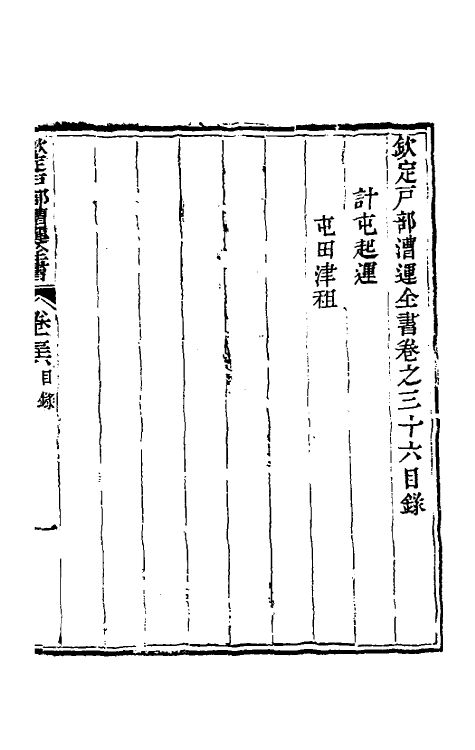 欽定戸部漕運全書卷之三十六目錄
計屯起運
屯田津租
欽定戸部漕運全書
卷三十六 目錄
一